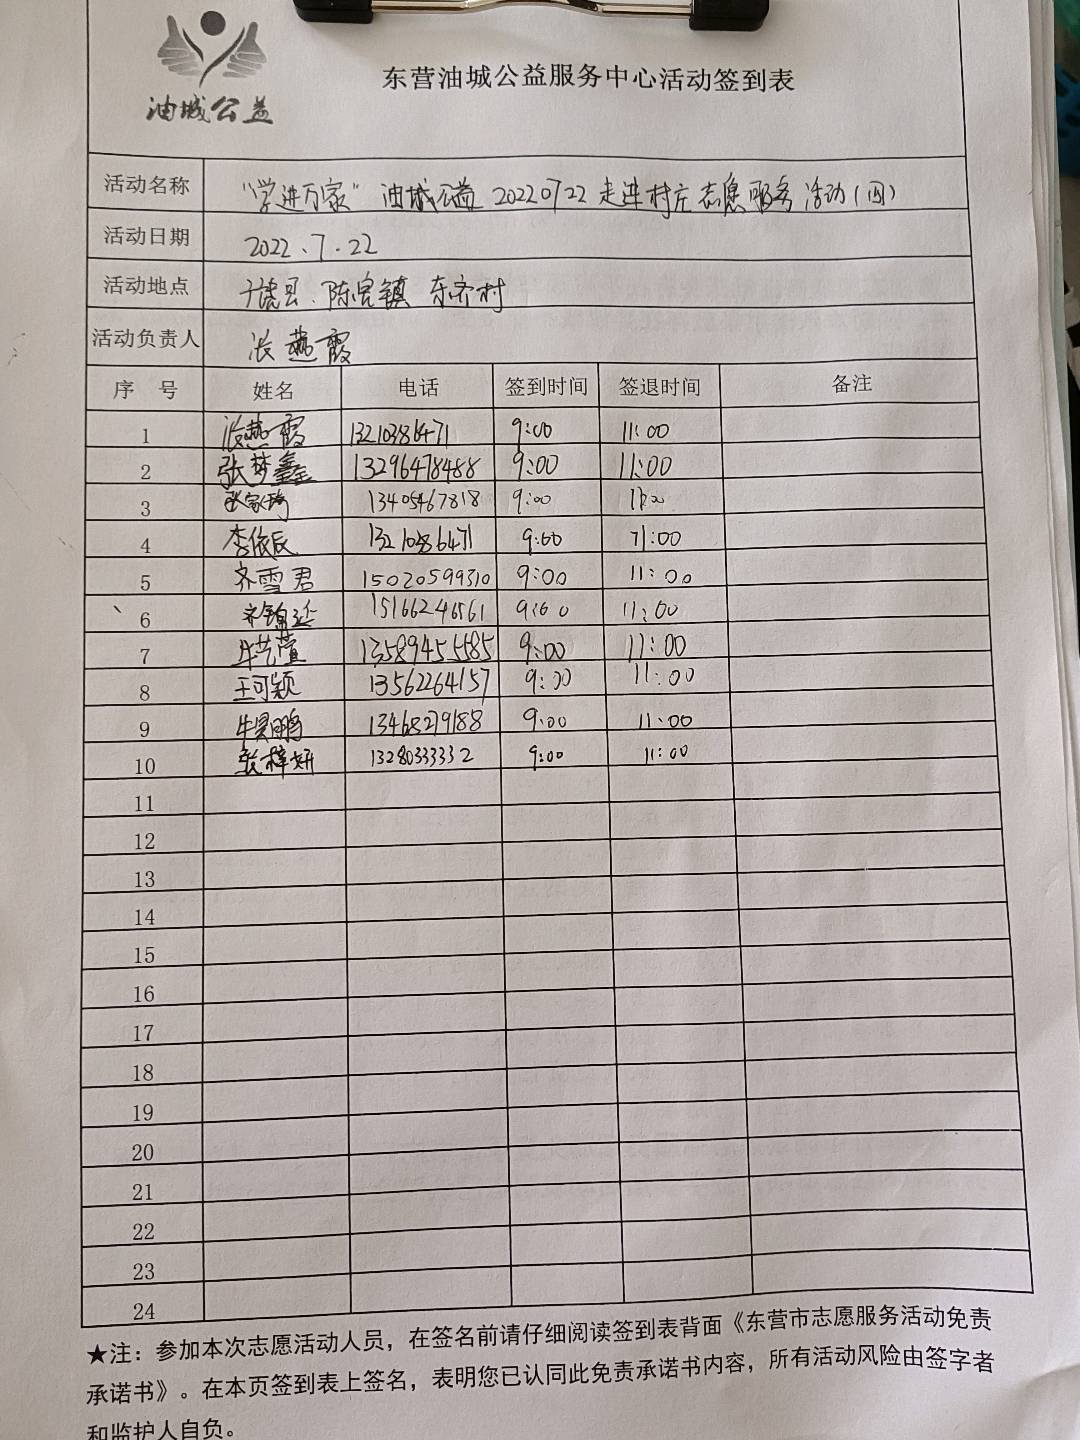 油城公益
东营油城公益服务中心活动签到表
活动名称 "学进万家" 油城公益 20220722 走进村庄志愿服务活动(四)
活动日期 2022、7.22
活动地点 广饶县、陈官镇 东齐村
活动负责人 张燕霞
序 号 姓名 电话 签到时间 签退时间 备注
1 张燕霞 13210386471 9:00 11:00
2 张梦鑫 13296478488 9:00 11:00
3 13405467818 9:00 11:00
4 李依辰 9:00 11:00
5 齐雪君 15020599310 9:00 11:00
6 齐锦延 15166246561 9:00 11:00
7 艺萱 13589455585 9:00 11:00
8 王可颖 13562264157 9:00 11:00
9 鹏 13468279188 9:00 11:00
10 张梓妍 13280333332 9:00 11:00
11
12
13
14
15
16
17
18
19
20
21
22
23
24
★注：参加本次志愿活动人员，在签名前请仔细阅读签到表背面《东营市志愿服务活动免责
承诺书》。在本页签到表上签名，表明您已认同此免责承诺书内容，所有活动风险由签字者
和监护人自负。